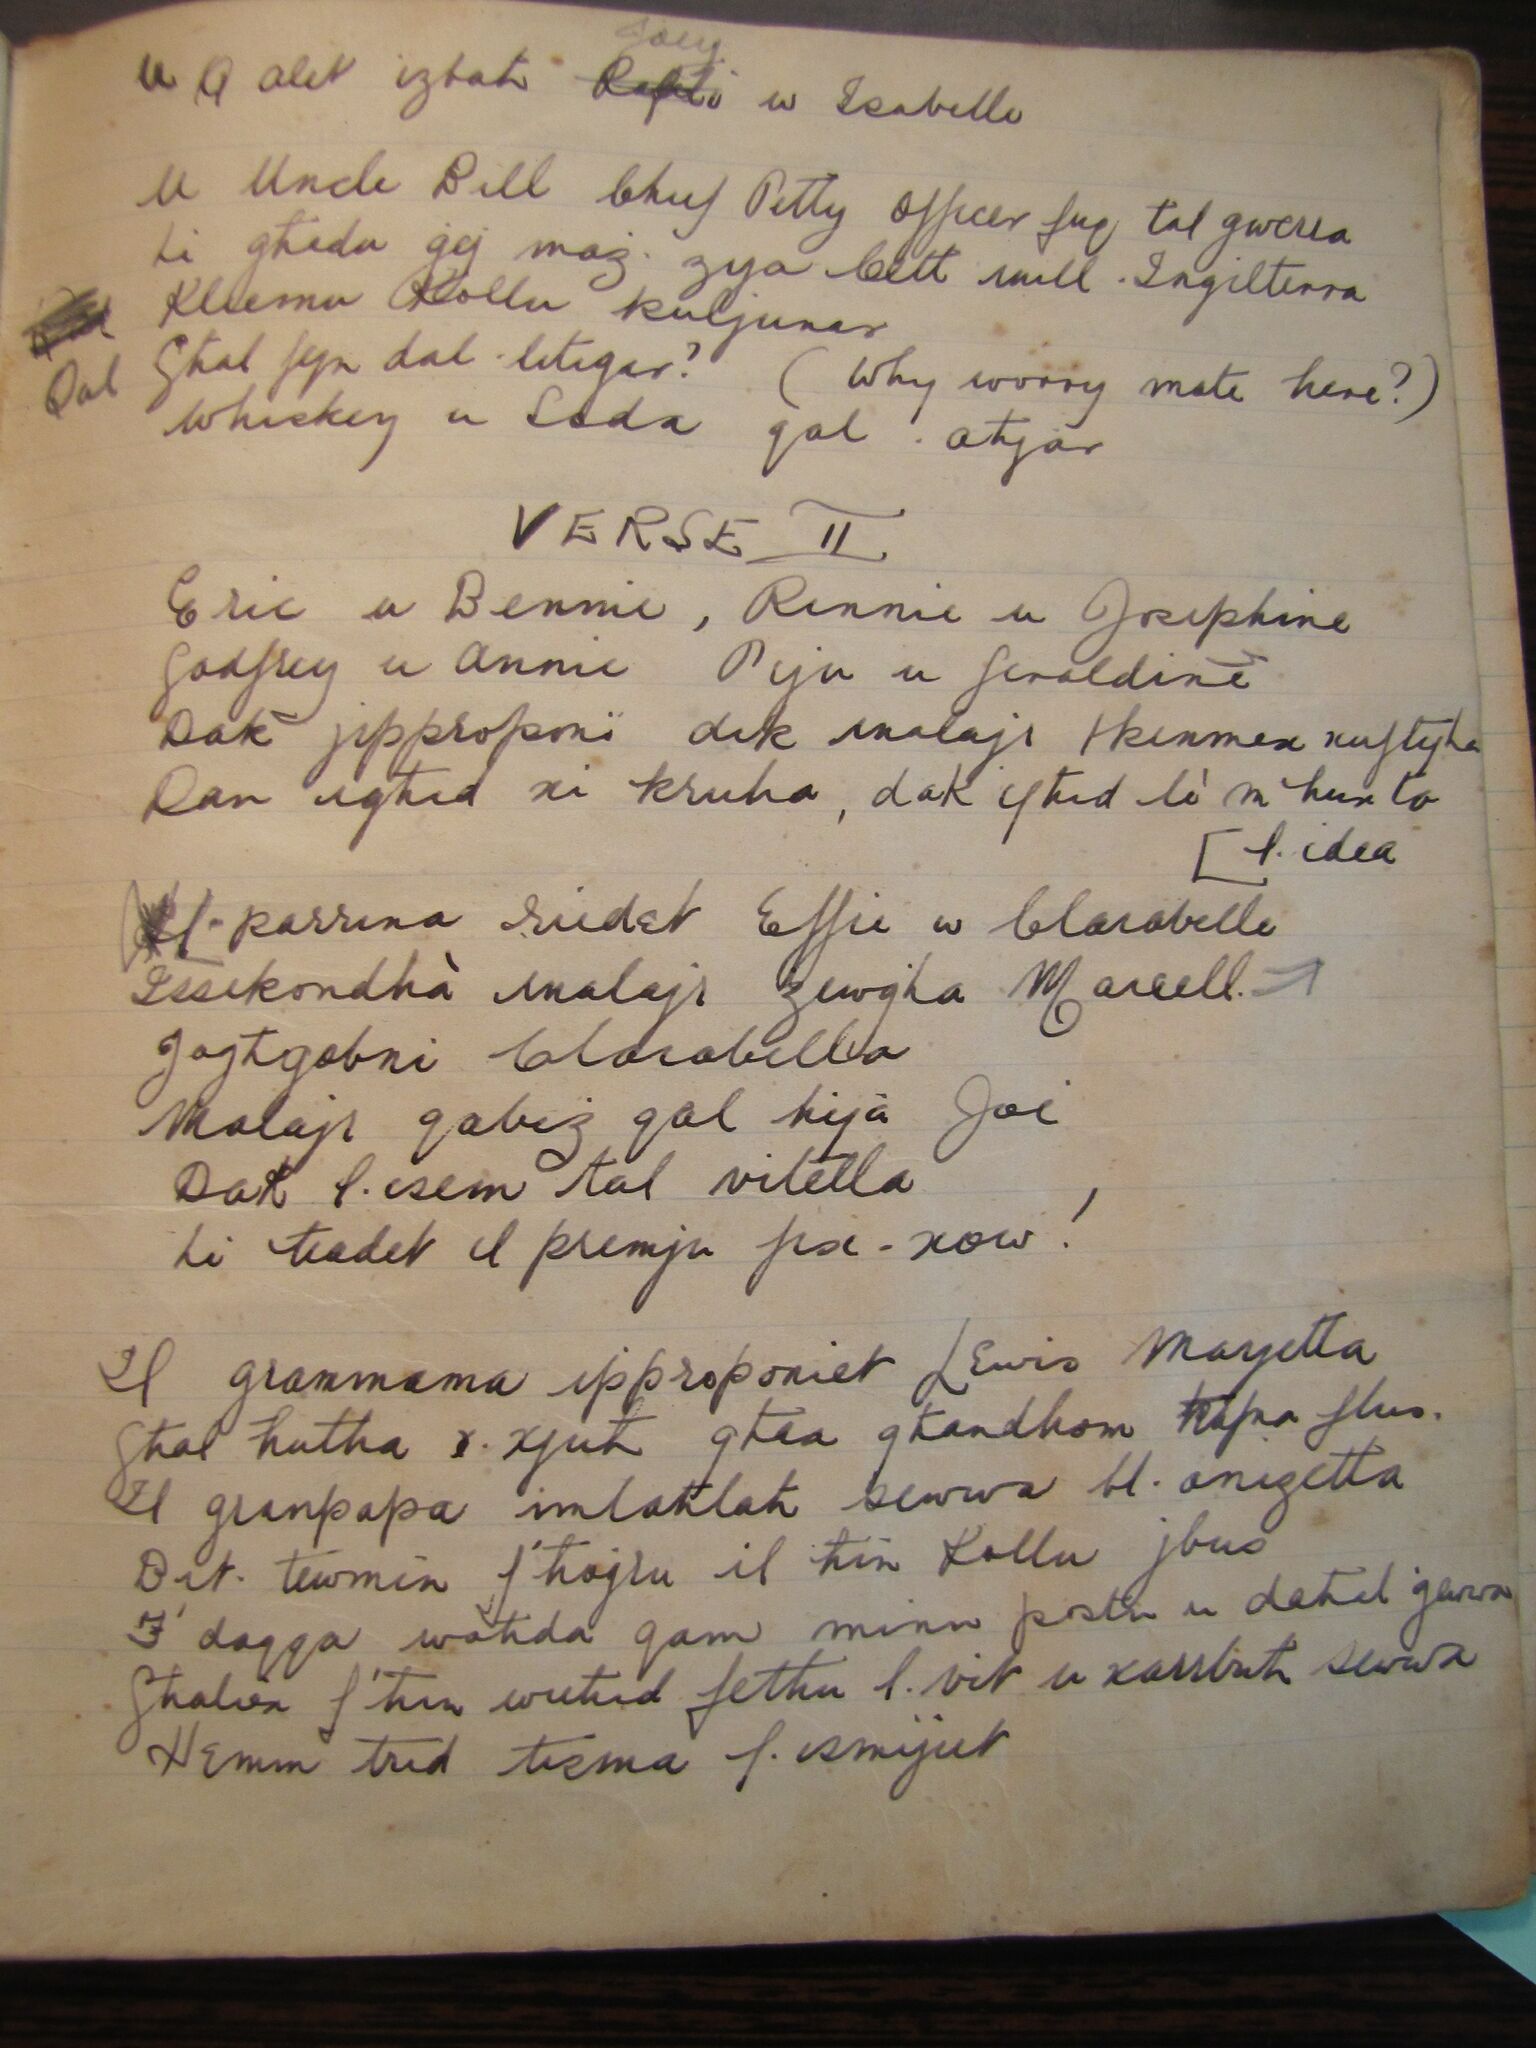 u Q alet izbah Joey w Isabelle
u Uncle Bill Chief Petty Officer fuq tal gwerra
li ghadu gej maz. zija Cett mill. Ingilterra
Kliemu Kollu kuljunar
Dal Ghal fejn dal. litigar? (Why worry mate here?)
Whiskey u Soda qal. ahjar
VERSE II
Eric u Bennie, Rennie u Josephine
Godfrey u Annie Peju u Geraldine
Dak jipproponi dik malajr Hkenmex xuftijha
Dan ighid xi kruha, dak ighid li m'hux ta
[ l. idea
Il-parrina riedet Effie w Clarabelle
Issekondha malajr zewgha Marcell.
Joghgobni Clarabella
Malajr qabez qal hija Joe
Dak l. isem tal vitella
Li hadet il premju fix-xow!
Il grammama ipproponiet Lewis Maryetta
Ghal hutha x. xjuh ghax ghandhom hafna flus.
Il granpapa imlahlah sewwa bl. anizetta
Dit. tewmin f'hogru il hin Kollu jbus
F'daqqa wahda qam minn postu u dahal gewwa
Ghaliex f'hin wiehed fethu l. vit u xarrbuh sewwa
Hemm trid tisma l. ismijiet